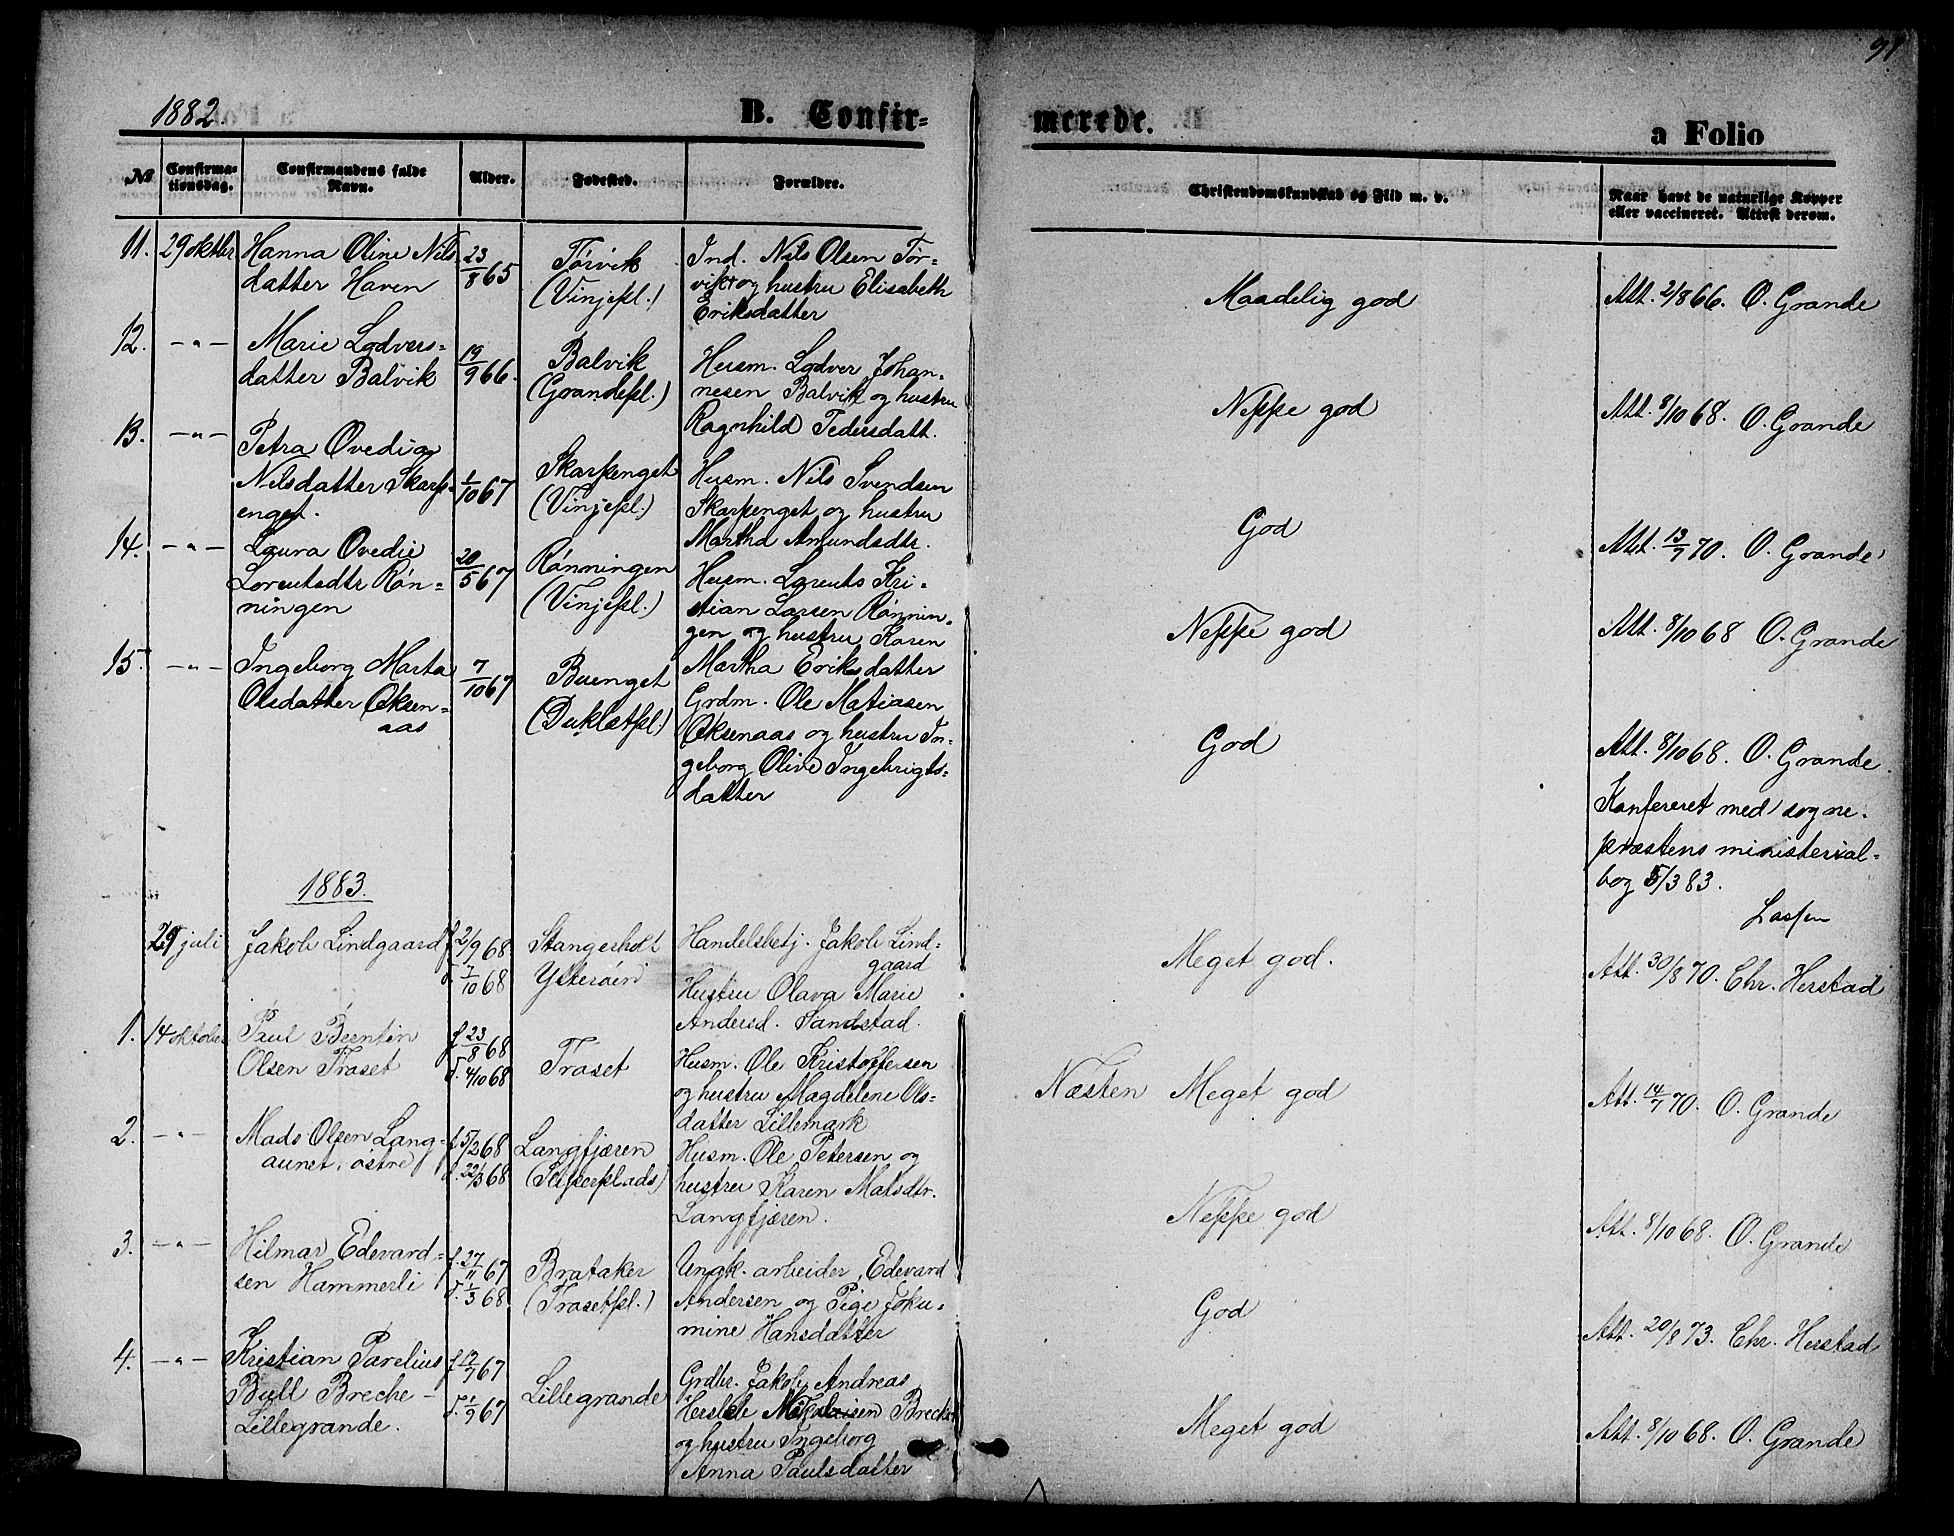 91
1882.
B. Confir-
merede.
a Folio
No
Confirma-
tionsdag.
Confirmandens fulde
Navn.
Alder.
Fødested.
Forældre.
Christendomskundskab og Flid m. v.
Naar havt de naturlige Kopper
eller vaccineret. Attest derom.
11. 29 oktbr Hanna Oline Nils
datter Haven
23/8 65
Tørvik
(Vinjepl.)
Ind. Nils Olsen Tør-
vik og hustru Elisabeth
Eriksdatter
Maadelig god
Att. 2/8 66. O. Grande
12. -"- Marie Lodvers-
datter Balvik
19/9 66.
Balvik
(Grandepl.)
Husm. Lodver Johan-
nesen Balvik og hustru
Ragnhild Pedersdatt.
Neppe god
Att. 8/10 68. O. Grande
13. -"- Petra Ovedia
Nilsdatter Skarp-
enget.
1/10 67
Skarpenget
(Vinjepl.)
Husm. Nils Svendsen
Skarpenget og hustru
Martha Amundsdtr.
God
Att. 13/9 70. O. Grande
14. -"- Laura Ovedie
Lorentsdtr Røn-
ningen
20/5 67
Rønningen
(Vinjepl.)
Husm. Lorents Kri-
stian Larsen Rønnin-
gen og hustru Karen
Martha Eriksdatter
Neppe god
Att. 8/10 68 O. Grande
15. -"- Ingeborg Marta
Olsdatter Øksen-
aas
7/10 67
Buenget
(Dukletpl.)
Grdm. Ole Matiasen
Øksenaas og hustru In-
geborg Olive Ingebrigts-
datter
God
Att. 8/10 68. O. Grande.
Konfereret med sogne-
præstens ministerial-
bog 5/3 83.
Lassen
1883.
29 juli Jakob Lindgaard
f. 2/9 68
d. 7/10 68
Stangerholt
Ytterøen
Handelsbetj. Jakob Lind-
gaard
Hustru Olava Marie
Andersd. Sandstad.
Meget god.
Att. 30/8 70. Chr. Herstad
1. 14 oktober Paul Berntin
Olsen Traset
f. 23/8 68
d. 4/10 68
Traset
Husm. Ole Kristoffersen
og hustru Magdelene Ols-
datter Lillemark
Næsten Meget god
Att. 14/7 70. O. Grande
2. -"- Mads Olsen Lang-
aunet, østre
f. 5/2 68
d. 22/3 68
Langfjæren
Husm. Ole Petersen og
hustru Karen Matsdtr.
Langfjæren.
Neppe god
Att. 8/10 68. O. Grande
3. -"- Hilmar Edevard-
sen Hammerli
f. 27/11 67
d. 1/3 68.
Brataker
(Trasetpl.)
Ungk. arbeider, Edevard
Andersen og Pige Joku-
mine Hansdatter
God
Att. 20/8 73. Chr. Herstad
4. -"- Kristian Parelius
Bull Breche-
Lillegrande.
f. 12/7 67
d. 1/9 67
Lillegrande
Grdbr. Jakob Andreas
Hersleb Breche
og hustru Ingeborg
Anna Paulsdatter
Meget god
Att. 8/10 68. O. Grande